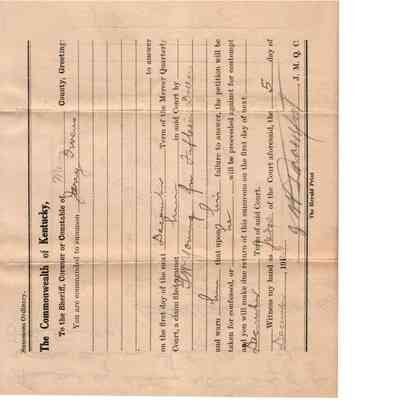 Summons Ordinary.
The Commonwealth of Kentucky,
To the Sheriff, Coroner or Constable of M County, Greeting:
You are commanded to summon Jerry Owens
to answer
on the first day of the next December Term of the Mercer Quarterly
Court, a claim filed against him in said Court by
Young for
and warn him that upon his failure to answer, the petition will be
taken for confessed, or he will be proceeded against for contempt
and you will make due return of this summons on the first day of next
December Term of said Court.
Witness my hand as Judge of the Court aforesaid, the 5 day of
December 191
J. M. Q. C.
The Herald Print